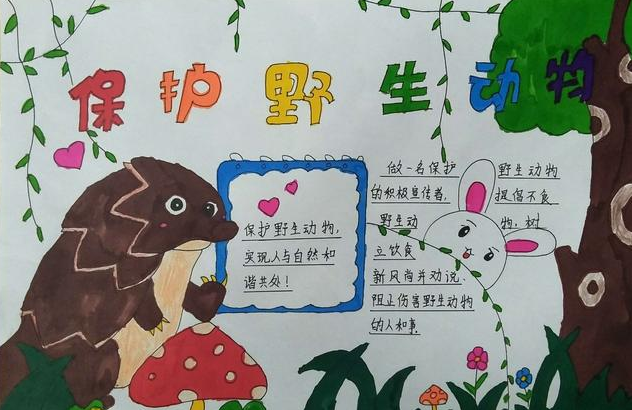 保护野生动物
保护野生动物,
实现人与自然和
谐共处!
做一名保护野生动物
的积极宣传者,提倡不食
野生动物,树
立饮食
新风尚并劝说、
阻止伤害野生动物
的人和事.